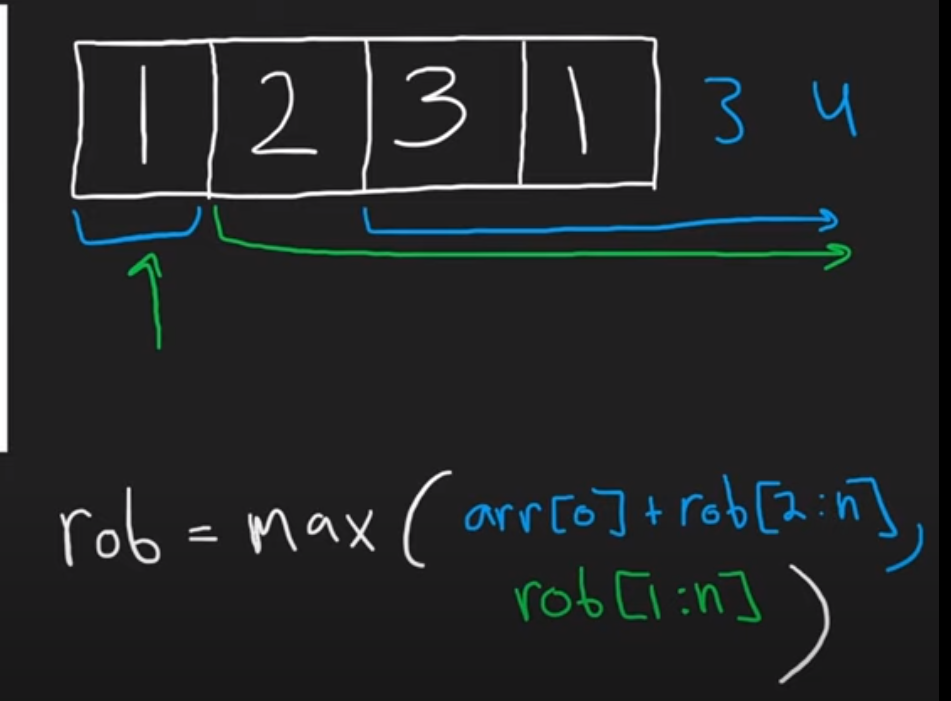 1 2 3 1 3 4
rob = max( arr[0] + rob[2:n],
rob[1:n] )